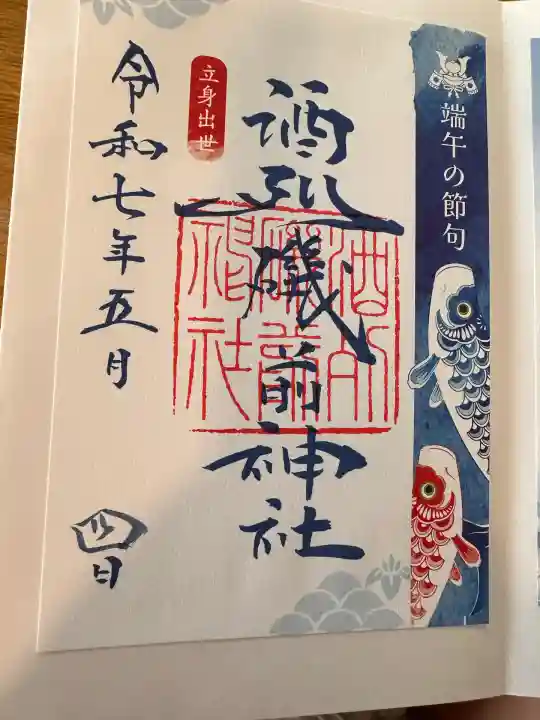 端午の節句
酒列磯前神社
酒列
磯前
神社
立身出世
令和七年五月
四日